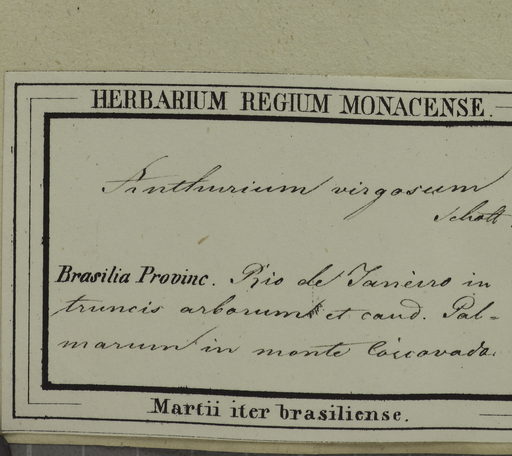 HERBARIUM REGIUM MONACENSE.
Anthurium virgosum
Schott.
Brasilia Provinc. Rio de Janeiro in
truncis arborum et caud. Pal=
marum in monte Corcovado.
Martii iter brasiliense.